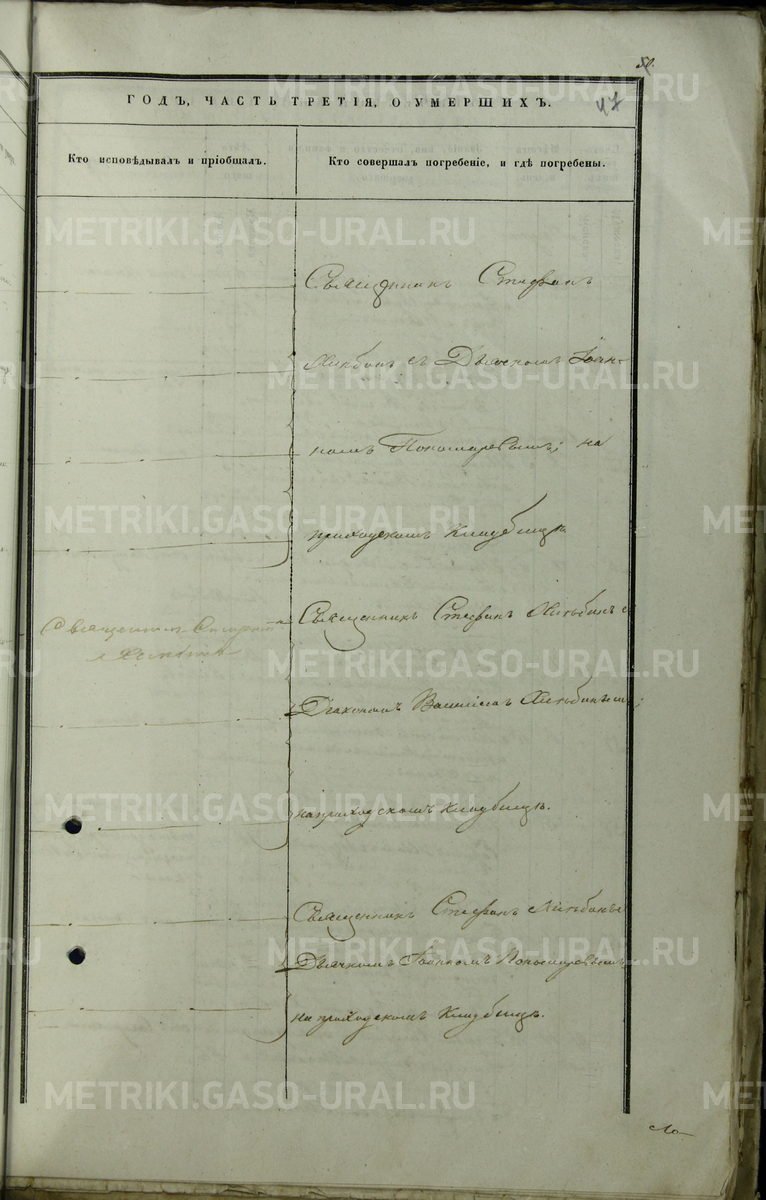 50.
47
ГОДЪ, ЧАСТЬ ТРЕТІЯ, О УМЕРШИХЪ.
Кто исповѣдывалъ и пріобщалъ.
Кто совершалъ погребеніе, и гдѣ погребены.
Священникъ Стефанъ
Хлѣбинъ съ Дьячкомъ Іоан-
номъ Пономаревымъ; на
приходскомъ кладбищѣ
Священникъ Стефанъ Хлѣбинъ с
Діакономъ Хлѣбинымъ;
на приходскомъ кладбищѣ.
Священникъ Стефанъ
Священникъ Стефанъ Хлѣбинъ с
Дьячкомъ Іоанномъ Пономаревымъ
на приходскомъ кладбищѣ.
METRIKI.GASO-URAL.RU